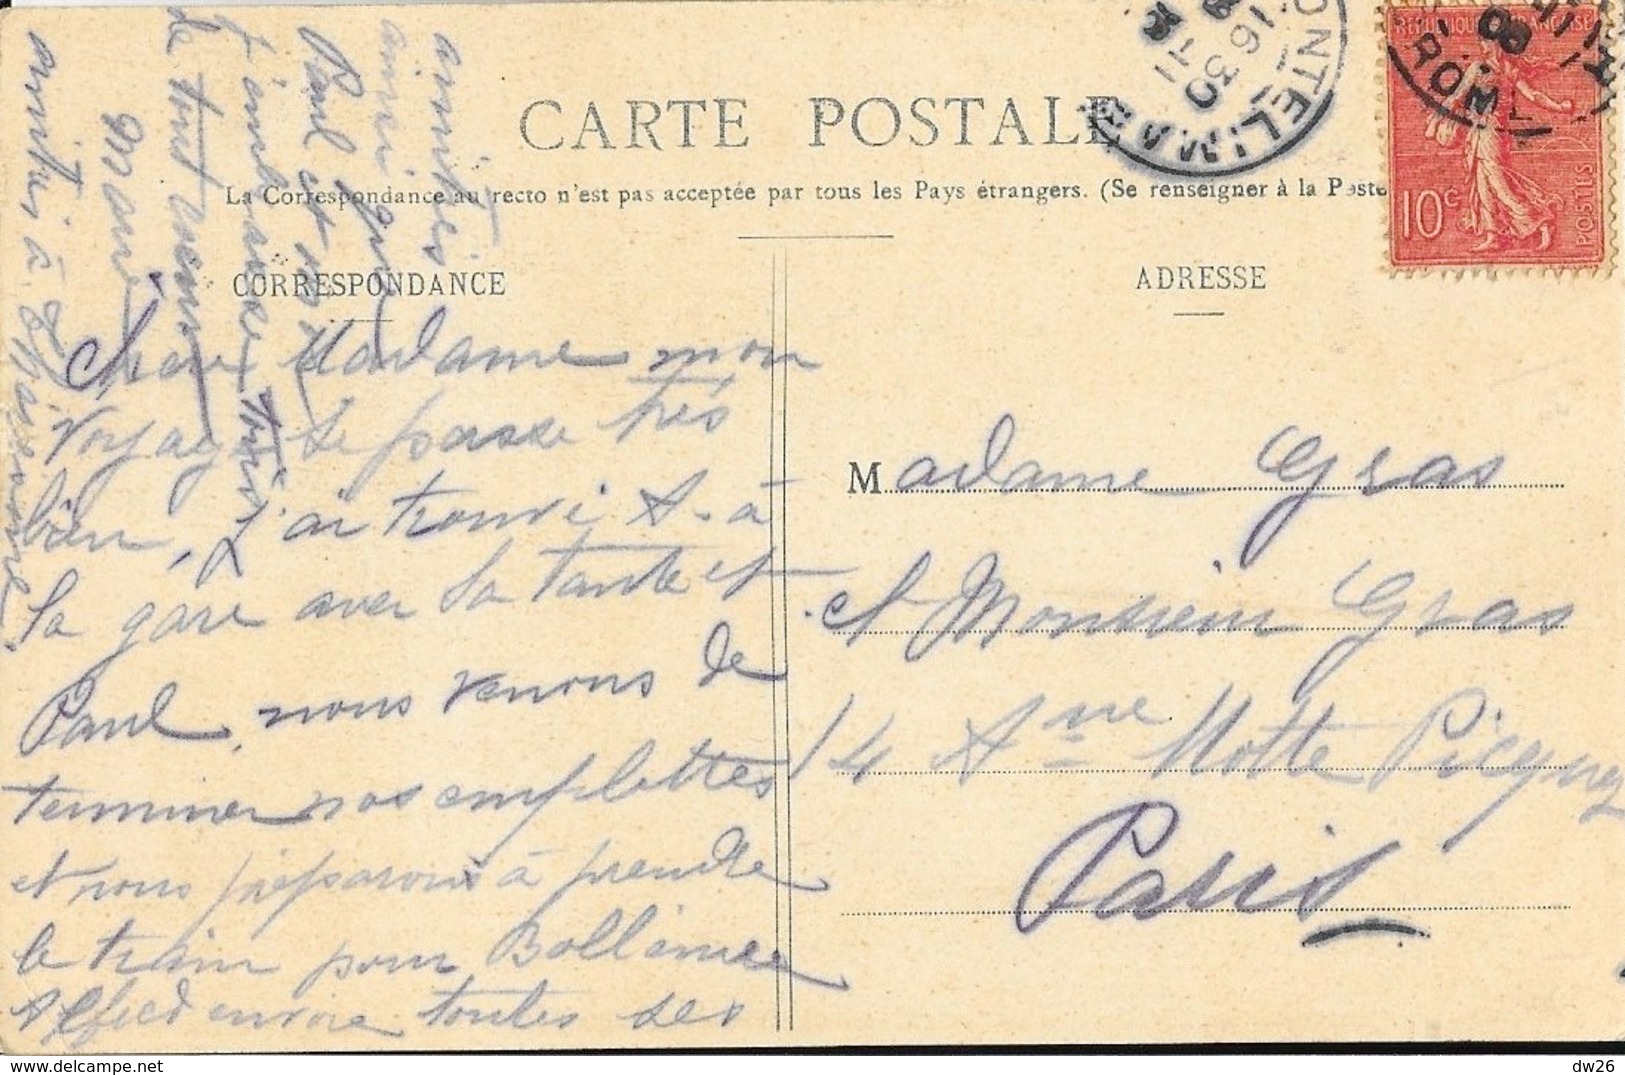 CARTE POSTALE
La Correspondance au recto n'est pas acceptée par tous les Pays étrangers. (Se renseigner à la Poste
CORRESPONDANCE
Chère Madame mon
voyage se passe très
bien, j'ai trouvé A. à
la gare avec sa tante et
Paul, nous venons de
terminer nos emplettes
et nous préparons à prendre
le train pour Bollène
Alfred envoie toutes ses
amitiés
ainsi que
Paul et moi
j'embrasse tous
de tout coeur
Marie
amitiés à
ADRESSE
Madame Gras
et Monsieur Gras
14 Ave Motte Picquey
Paris
REPUBLIQUE FRANÇAISE
10c
POSTES
MONTELIMAR
16 30
DROME
dw26